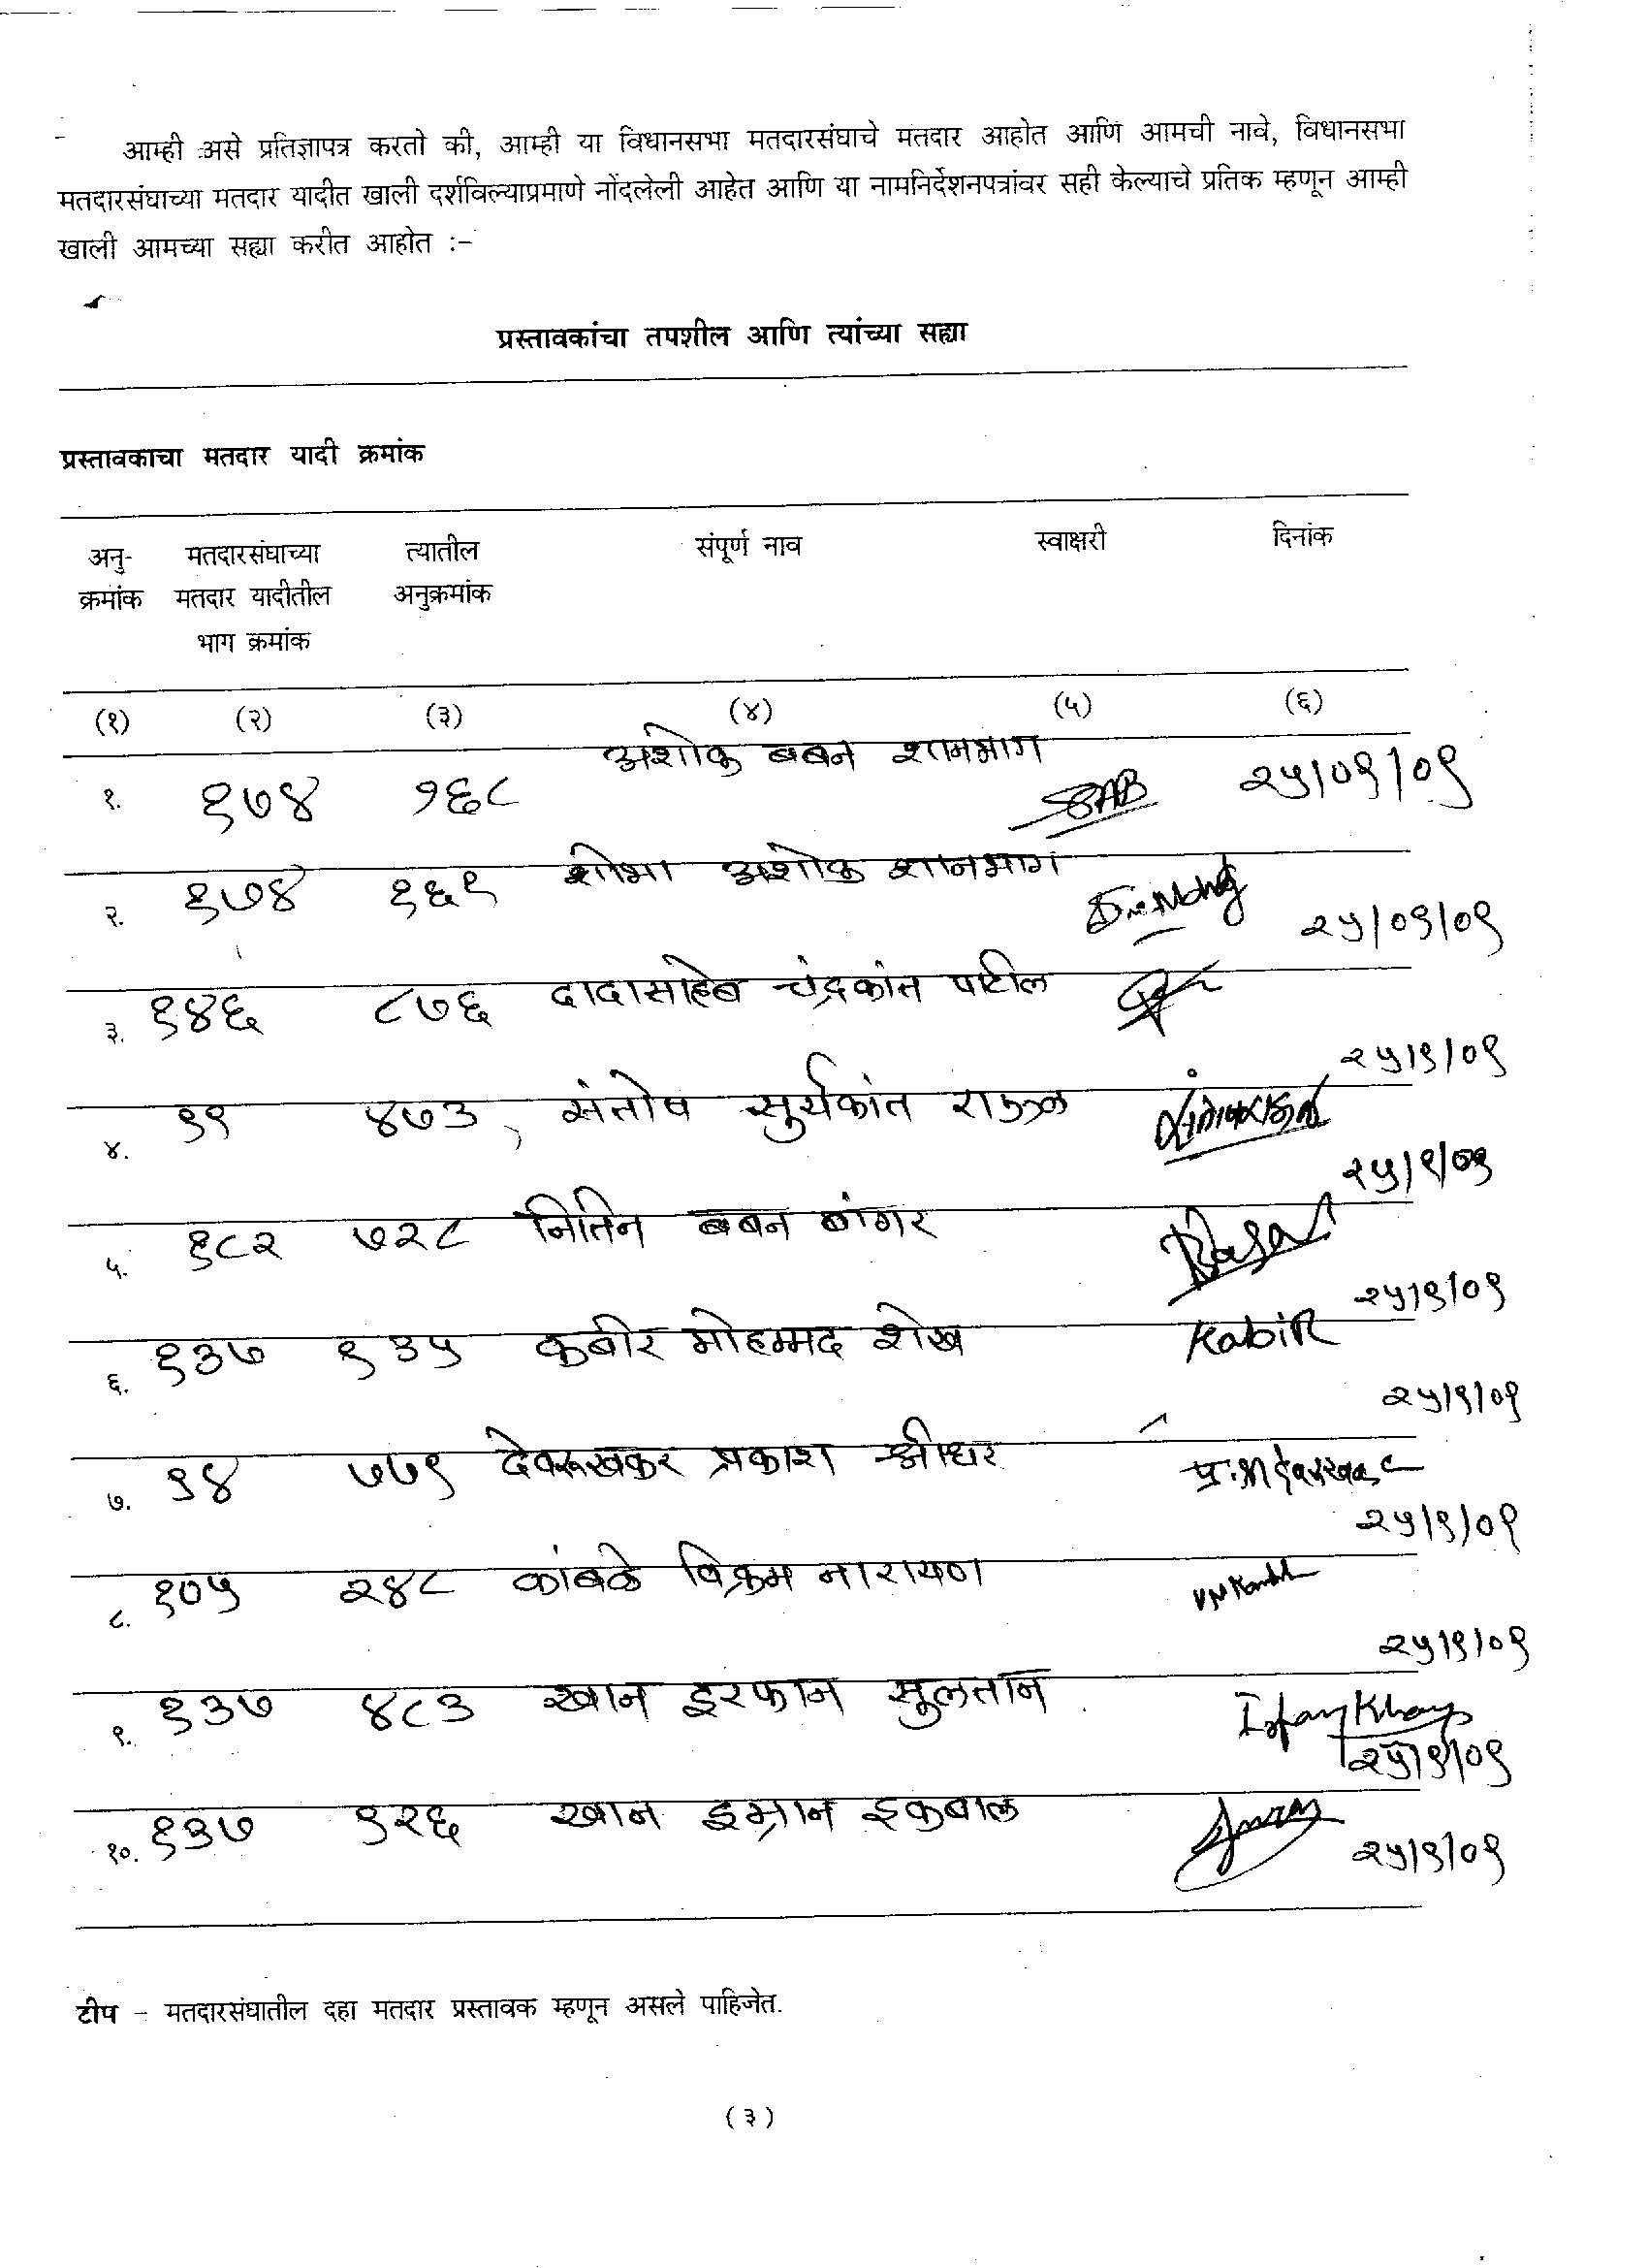 आम्ही असे प्रतिज्ञापत्र करतो की, आम्ही या विधानसभा मतदारसंघाचे मतदार आहोत आणि आमची नावे, विधानसभा
मतदारसंघाच्या मतदार यादीत खाली दर्शविल्याप्रमाणे नोंदलेली आहेत आणि या नामनिर्देशनपत्रांवर सही केल्याचे प्रतिक म्हणून आम्ही
खाली आमच्या सह्या करीत आहोत :-
प्रस्तावकांचा तपशील आणि त्यांच्या सह्या
प्रस्तावकाचा मतदार यादी क्रमांक
अनु- मतदारसंघाच्या त्यातील संपूर्ण नाव स्वाक्षरी दिनांक
क्रमांक मतदार यादीतील अनुक्रमांक
भाग क्रमांक
(१) (२) (३) (४) (५) (६)
१. १७४ १६८ अशोक बबन शानभाग २५/०९/०९
२. १७४ १६९ शोभा अशोक शानभाग २५/०९/०९
३. १४६ ८७६ दादासाहेब चंद्रकांत पाटील २५/९/०९
४. ९९ ४७३ संतोष सूर्यकांत राऊळ २५/९/०९
५. १८२ ७२८ नितिन बबन बांगर २५/९/०९
६. १३७ ९३५ कबीर मोहम्मद शेख Kabir २५/९/०९
७. ९४ ७७९ देवरूखकर प्रकाश श्रीधर प्र.श्री देवरूखकर २५/९/०९
८. १०५ २४८ कांबळे विक्रम नारायण २५/९/०९
९. १३७ ४८३ खान इरफान सुलतान Irfan Khan २५/९/०९
१०. १३७ ९२६ खान इम्रान इकबाल २५/९/०९
टीप - मतदारसंघातील दहा मतदार प्रस्तावक म्हणून असले पाहिजेत.
(३)